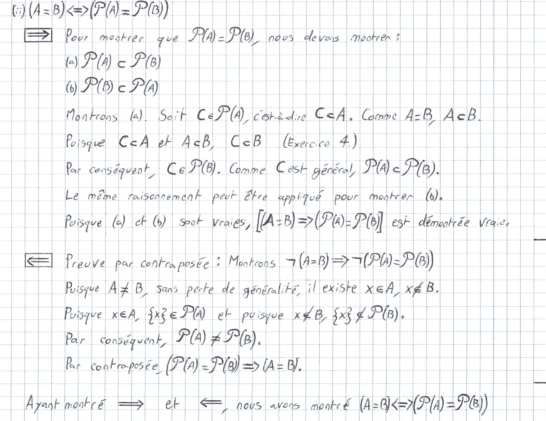 (ii) (A = B) <=> (P(A) = P(B))
=> Pour montrer que P(A) = P(B), nous devons montrer :
(a) P(A) ⊂ P(B)
(b) P(B) ⊂ P(A)
Montrons (a). Soit C ∈ P(A), c'est-à-dire C ⊂ A. Comme A = B, A ⊂ B.
Puisque C ⊂ A et A ⊂ B, C ⊂ B (Exercice 4)
Par conséquent, C ∈ P(B). Comme C est général, P(A) ⊂ P(B).
Le même raisonnement peut être appliqué pour montrer (b).
Puisque (a) et (b) sont vraies, [(A = B) => (P(A) = P(B)] est démontrée vraie.
<= Preuve par contraposée : Montrons ¬(A = B) => ¬(P(A) = P(B))
Puisque A ≠ B, sans perte de généralité, il existe x ∈ A, x ∉ B.
Puisque x ∈ A, {x} ∈ P(A) et puisque x ∉ B, {x} ∉ P(B).
Par conséquent, P(A) ≠ P(B).
Par contraposée, (P(A) = P(B)) => (A = B).
Ayant montré => et <=, nous avons montré (A = B) <=> (P(A) = P(B))